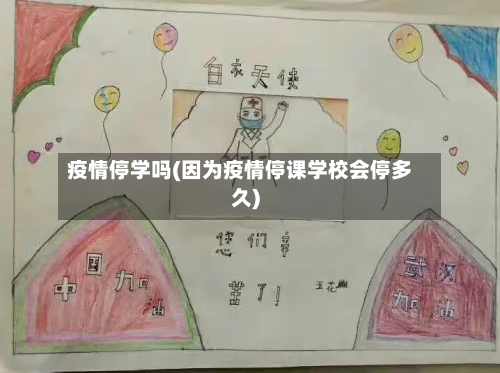 白衣天使
疫情停学吗(因为疫情停课学校会停多
久)
您们辛
苦了!
中国加油
武汉
加油